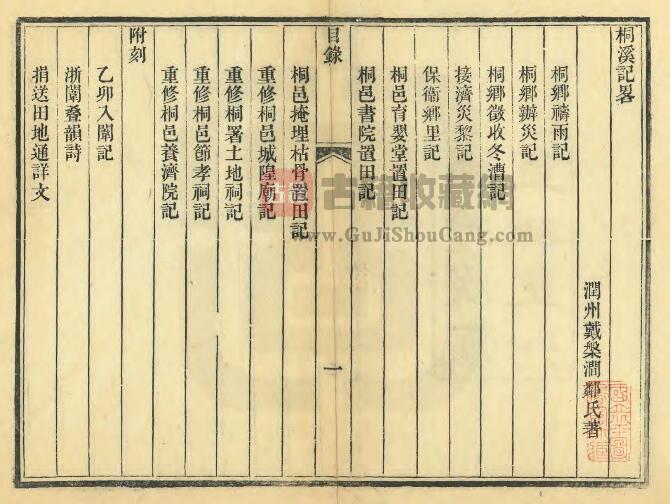 桐溪記畧
潤州戴槃澗鄰氏著
桐鄉禱雨記
桐鄉辦災記
桐鄉徵收冬漕記
接濟災黎記
保衞鄉里記
桐邑育嬰堂置田記
桐邑書院置田記
目錄
一
桐邑掩埋枯骨置田記
重修桐邑城隍廟記
重修桐署土地祠記
重修桐邑節孝祠記
重修桐邑養濟院記
附刻
乙卯入闈記
浙闈叠韻詩
捐送田地通詳文
古籍收藏網
www.GuJiShouCang.com